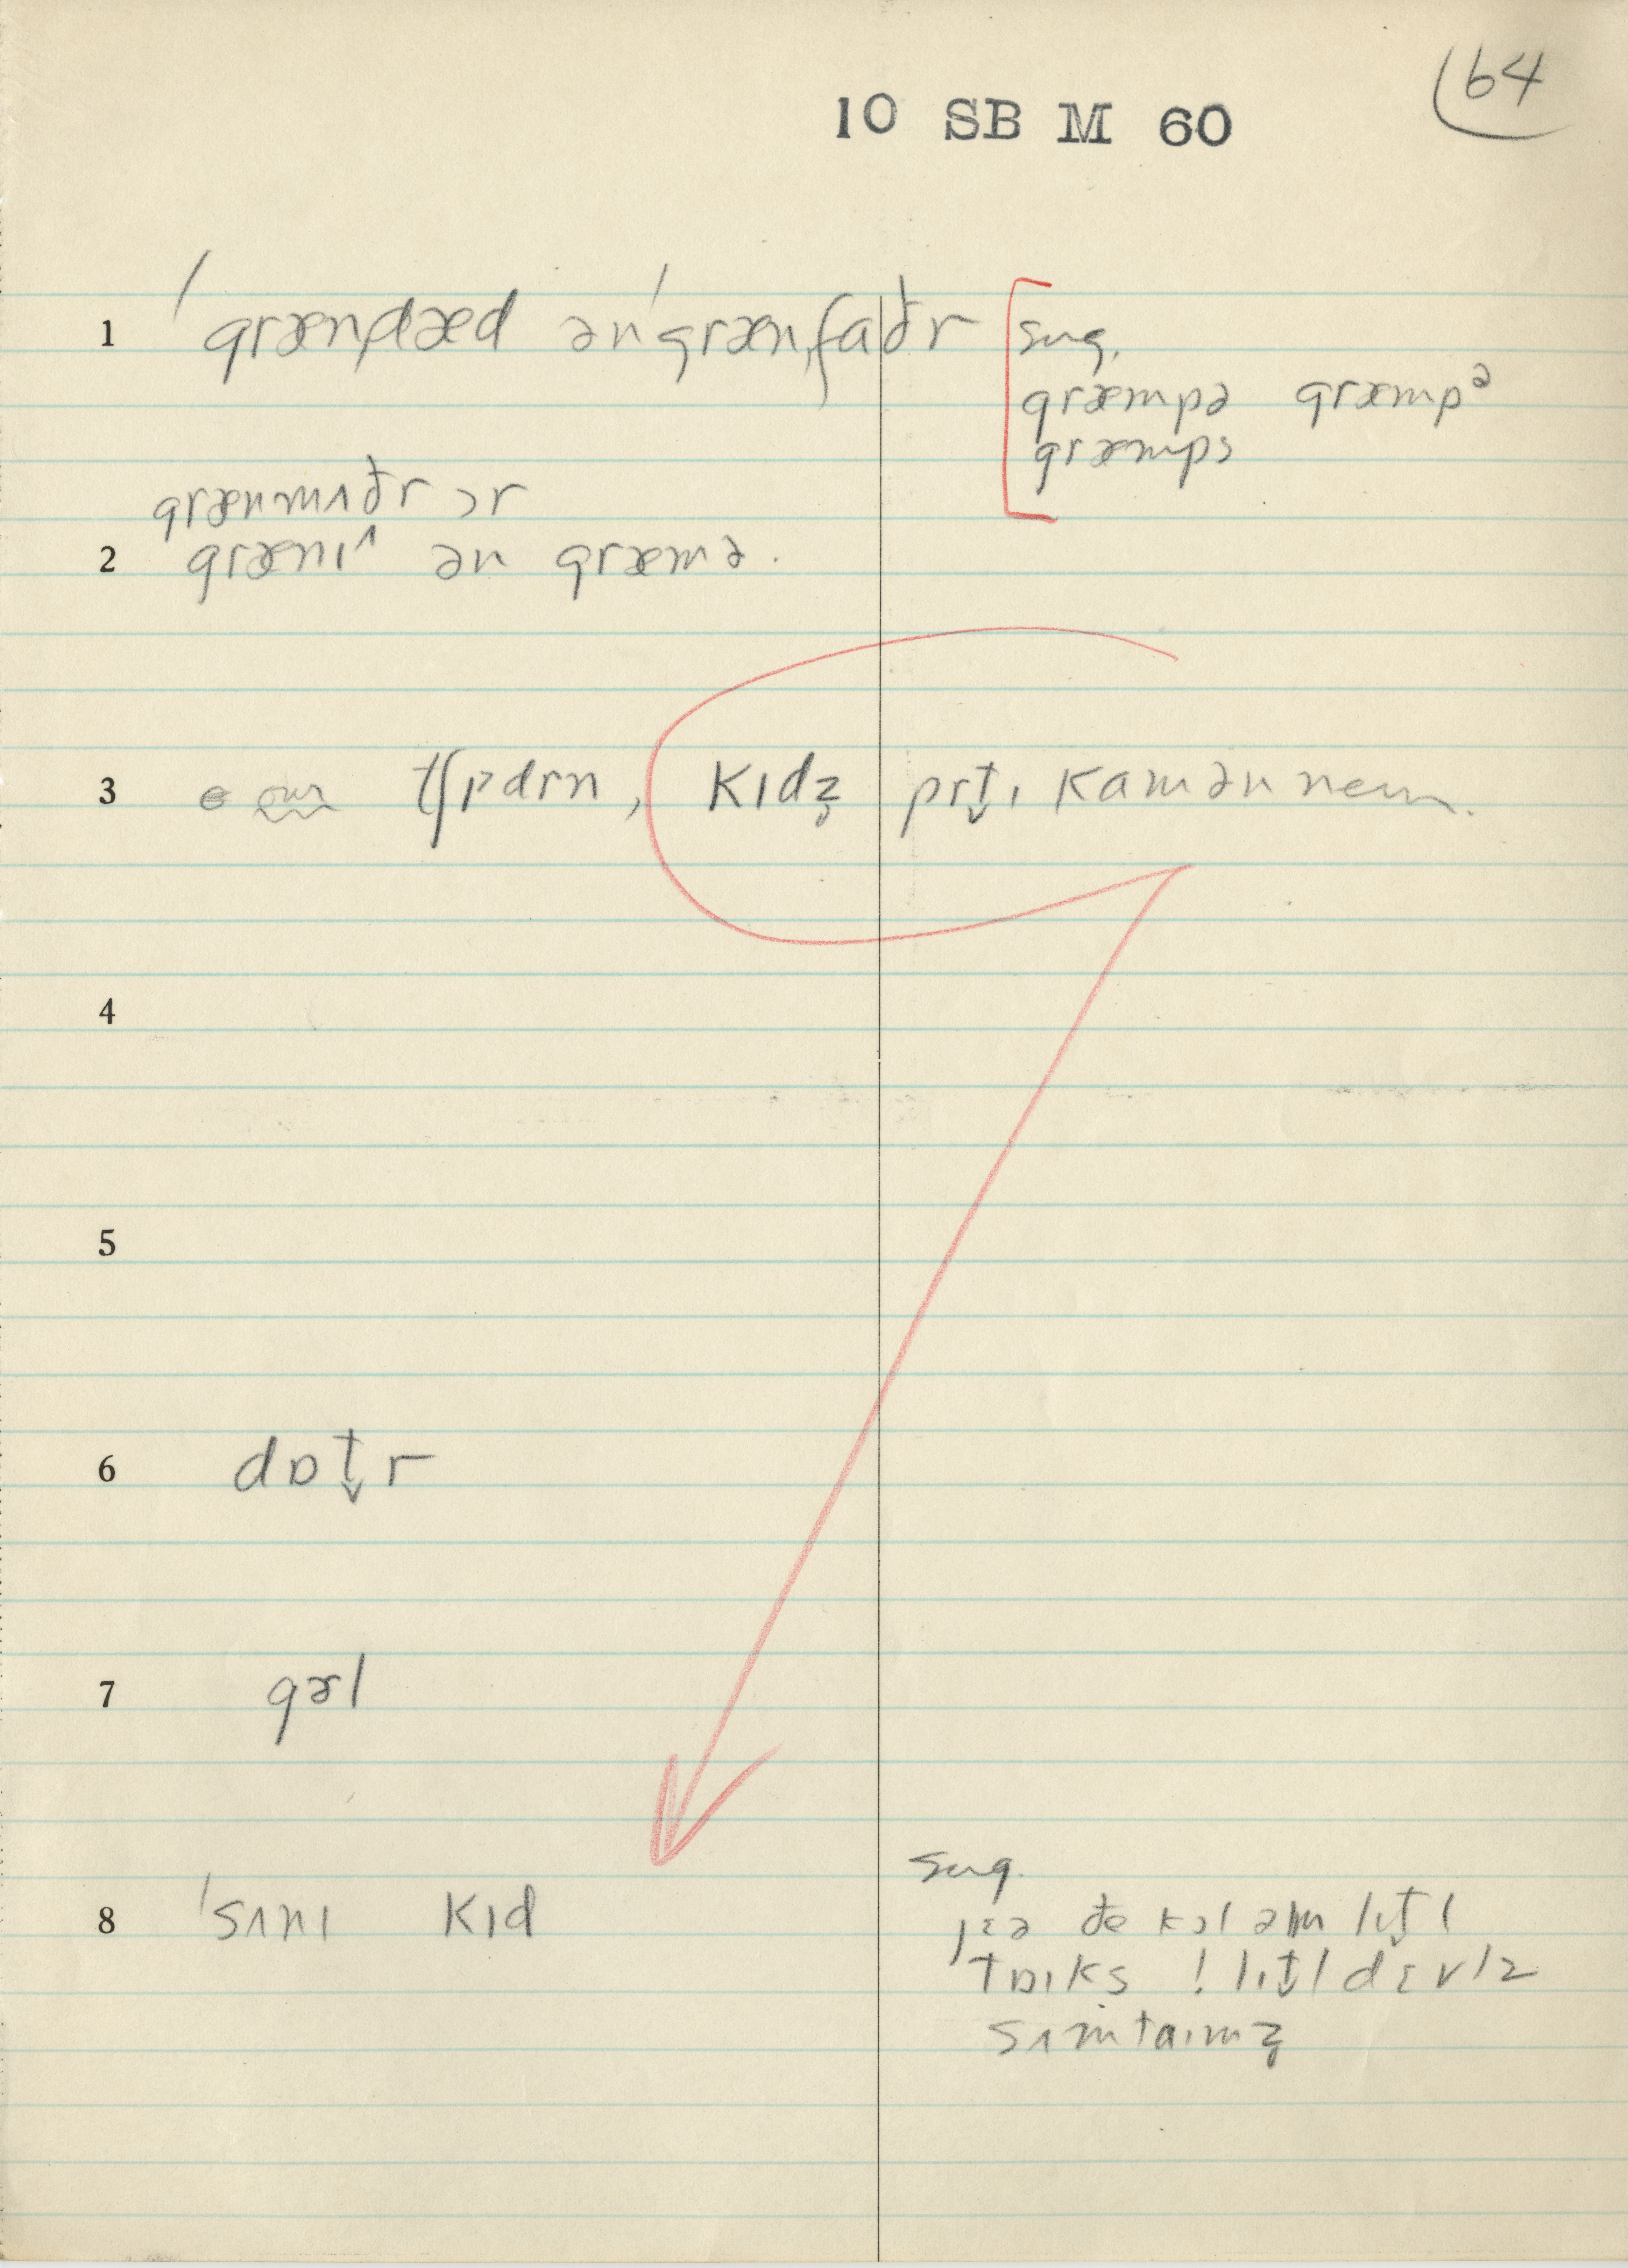 64
10 SB M 60
1 ˈgrænˌdæd ən ˈgrænˌfɑðr
sug.
græmpə græmpᵊ
græmps
grænmʌðr ɔr
2 grænɪ^ ən græmə.
3 kɪdz̥ prt̬ɪ kɑmən nem.
4
5
6 dɒt̬r
7 gɚl
8 ˈsʌnɪ kɪd
sug.
jɛə ðe kɔl əm lɪt̬l
tɒɪks ! lɪt̬l dɛvlz
sʌmtaɪmz̥